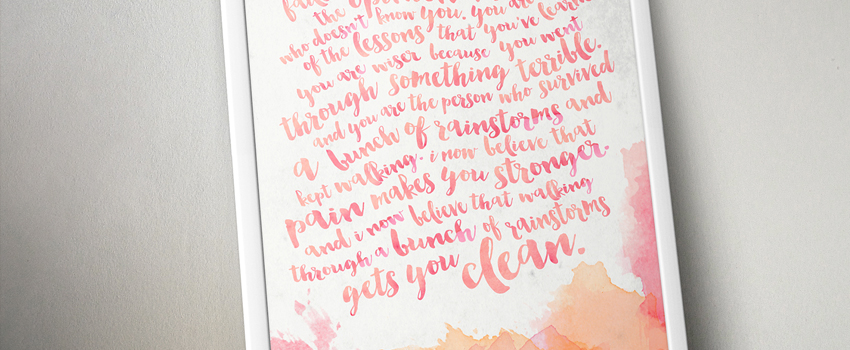 the opinion
who doesn't know you. you are
of the lessons that you've
you are wiser because you went
through something terrible.
and you are the person who survived
a bunch of rainstorms and
kept walking. i now believe that
pain makes you stronger.
and i now believe that walking
through a bunch of rainstorms
gets you clean.